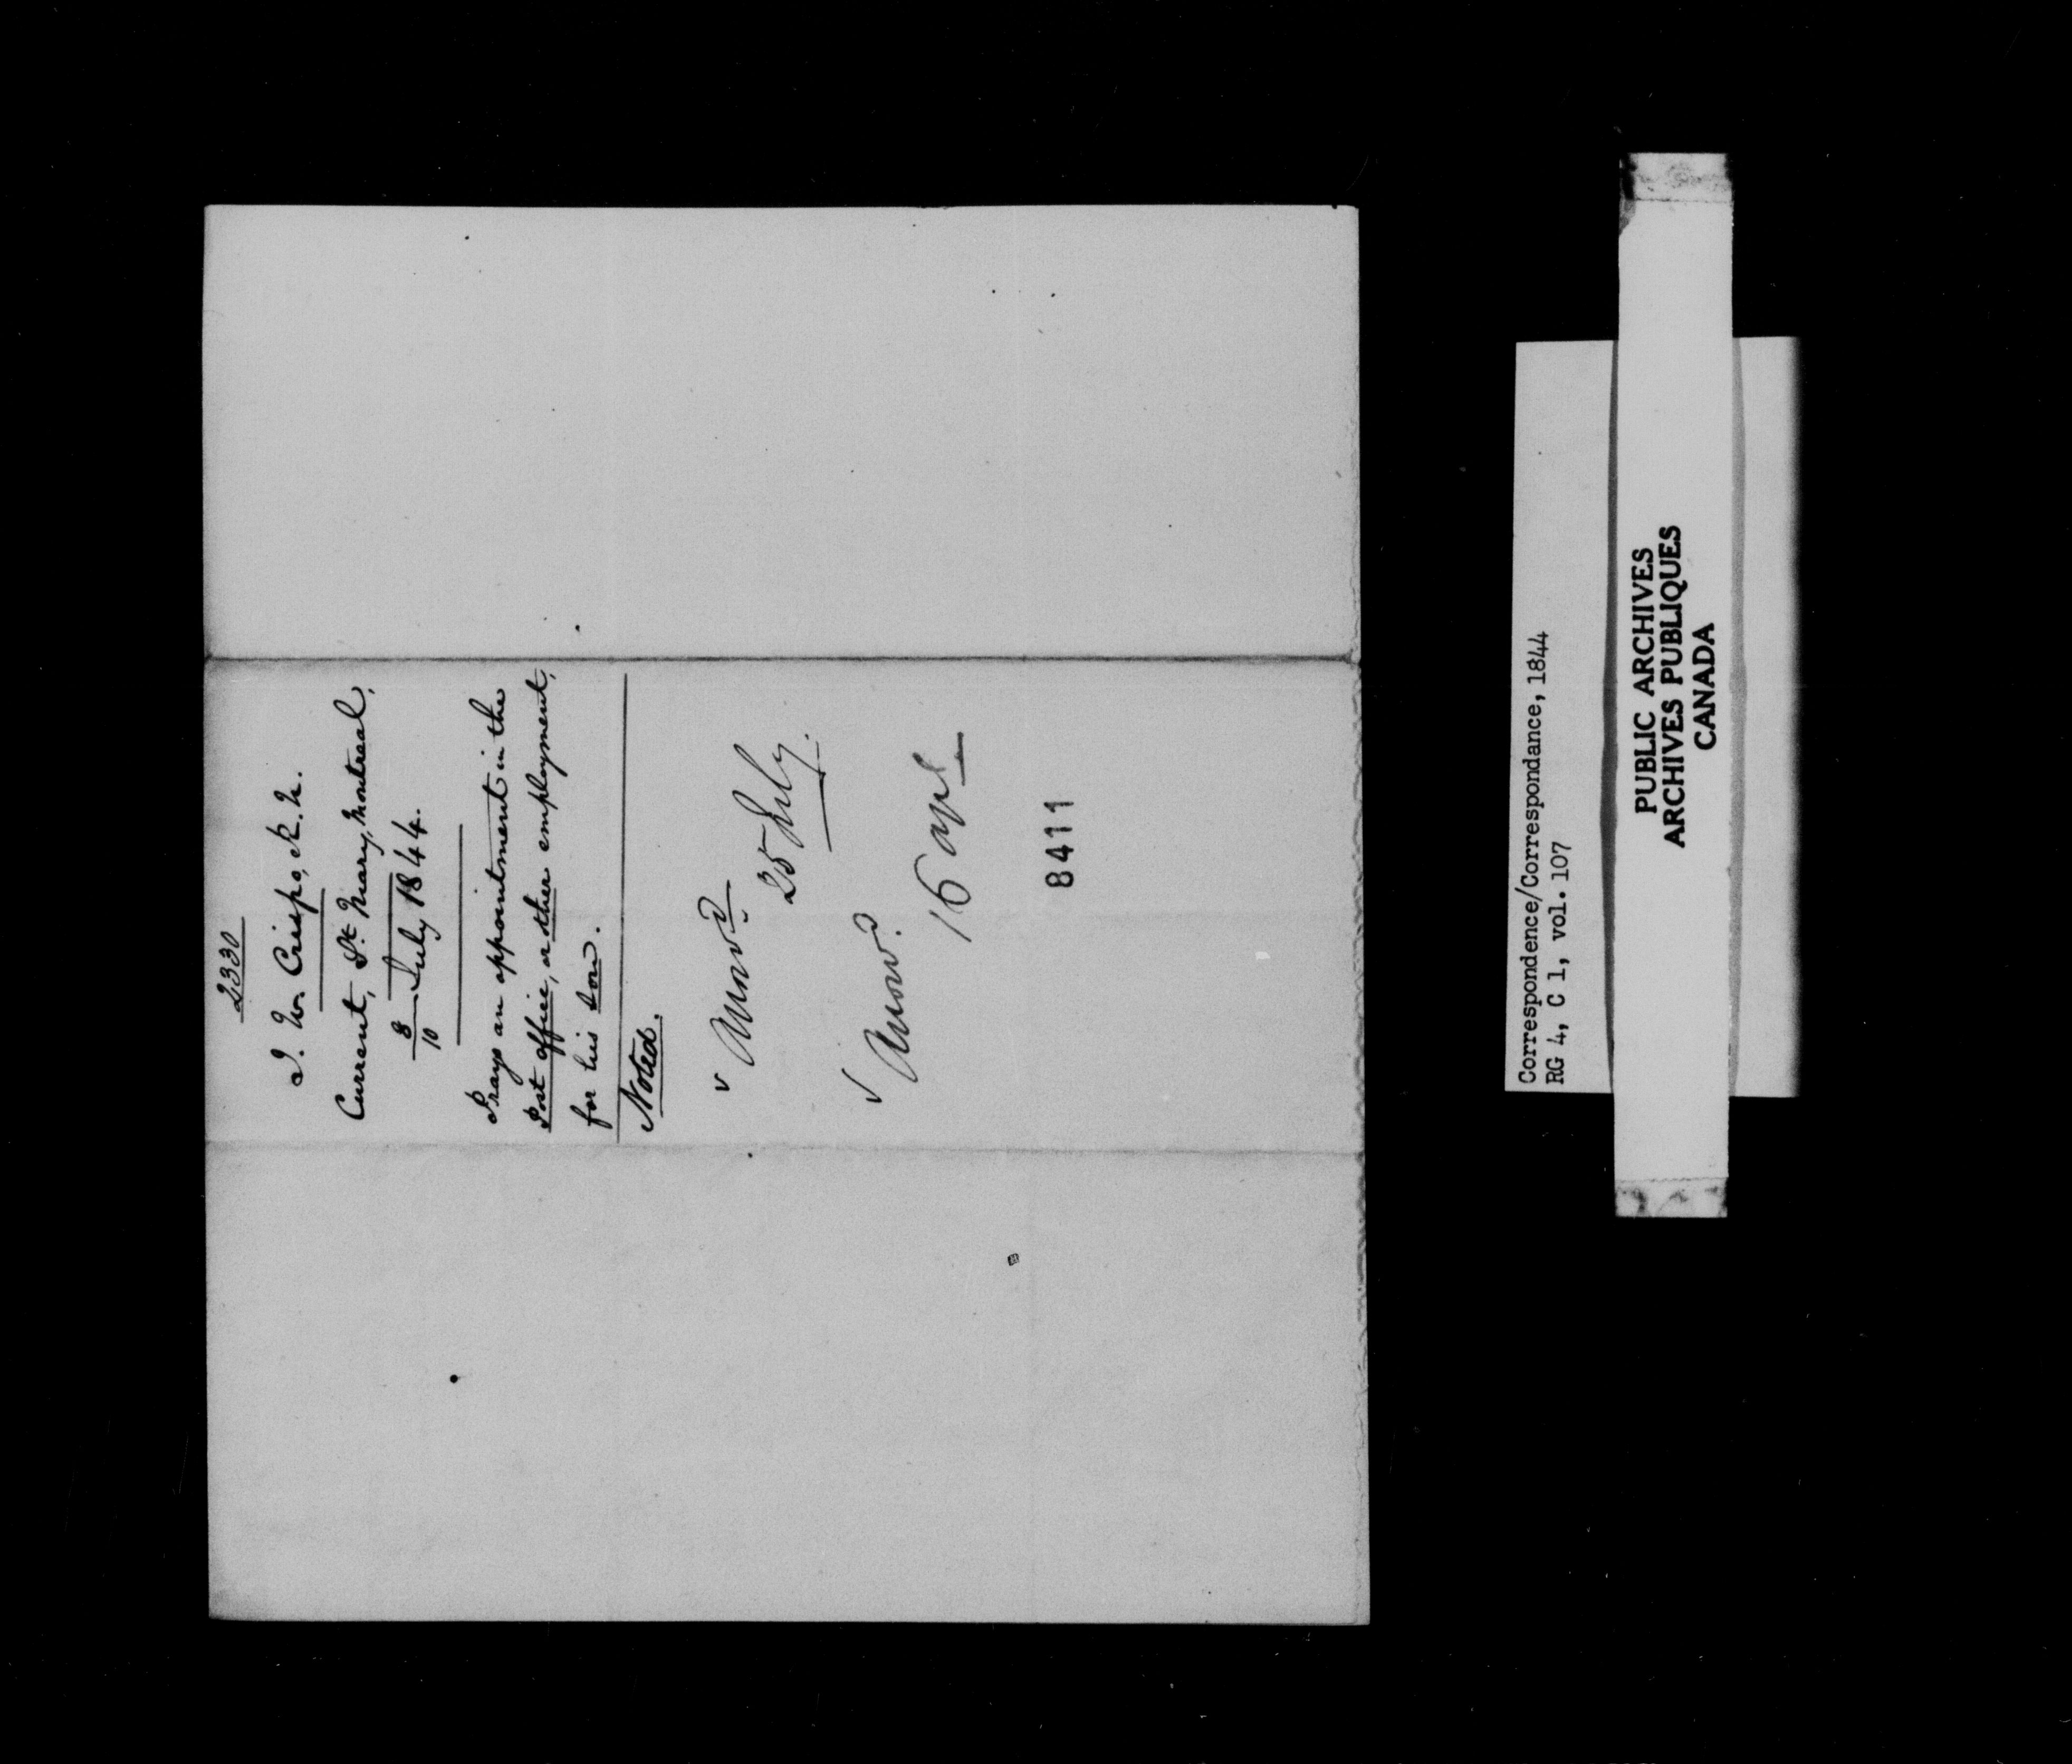 2330
J. W. Crispo, R. N.
Current, St. Mary, Montreal,
8/10 July 1844.
Prays an appointment in the
Post office, or other employment,
for his son.
Noted.
v Answd.
25 July.
v Answd.
16 apl
8411
Correspondence/Correspondance, 1844
RG 4, C 1, vol. 107
PUBLIC ARCHIVES
ARCHIVES PUBLIQUES
CANADA